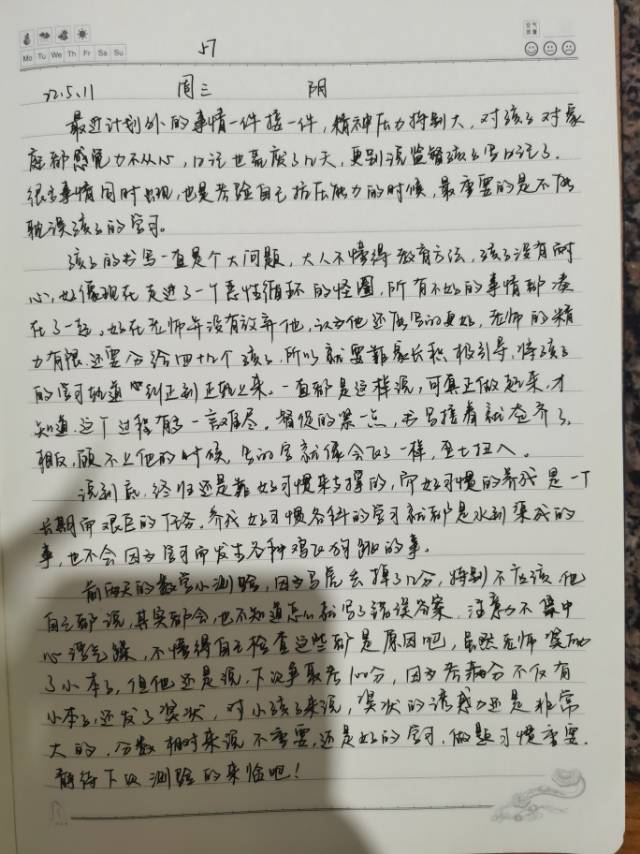 Mo Tu We Th Fr Sa Su
57
22.5.11 周三 阴
最近计划外的事情一件接一件，精神压力特别大，对孩子对家
庭都感觉力不从心，日记也荒废了几天，更别说监督孩子写日记了。
很多事情同时出现，也是考验自己抗压能力的时候，最重要的是不能
耽误孩子的学习。
孩子的书写一直是个大问题，大人不懂得教育方法，孩子没有耐
心，好像现在走进了一个恶性循环的怪圈，所有不好的事情都凑
在了一起，好在老师年没有放弃他，认为他还能写的更好，老师的精
力有限，还要分给四十几个孩子，所以就要靠家长积极引导，将孩子
的学习轨道纠正到正轨上来。一直都是这样说，可真正做起来，才
知道，这个过程有多一言难尽。督促的紧一点，书写接着就整齐了，
相反，顾不上他的时候，写的字就像会飞了一样，歪七扭八。
说到底，终归还是靠好习惯来支撑的，而好习惯的养成是一个
长期而艰巨的任务，养成好习惯各科的学习就都是水到渠成的
事，也不会因为学习而发生各种鸡飞狗跳的事。
前两天的数学小测验，因为马虎丢掉了几分，特别不应该，他
自己都说，其实都会，也不知道怎么就写了错误答案，注意力不集中
心浮气躁，不懂得自己检查这些都是原因吧，虽然老师奖励
了小本子，但他还是说，下次争取考100分，因为考满分不仅有
小本子，还发了奖状，对小孩子来说，奖状的诱惑力还是非常
大的，分数相对来说不重要，还是好的学习，做题习惯重要，
静待下次测验的来临吧！